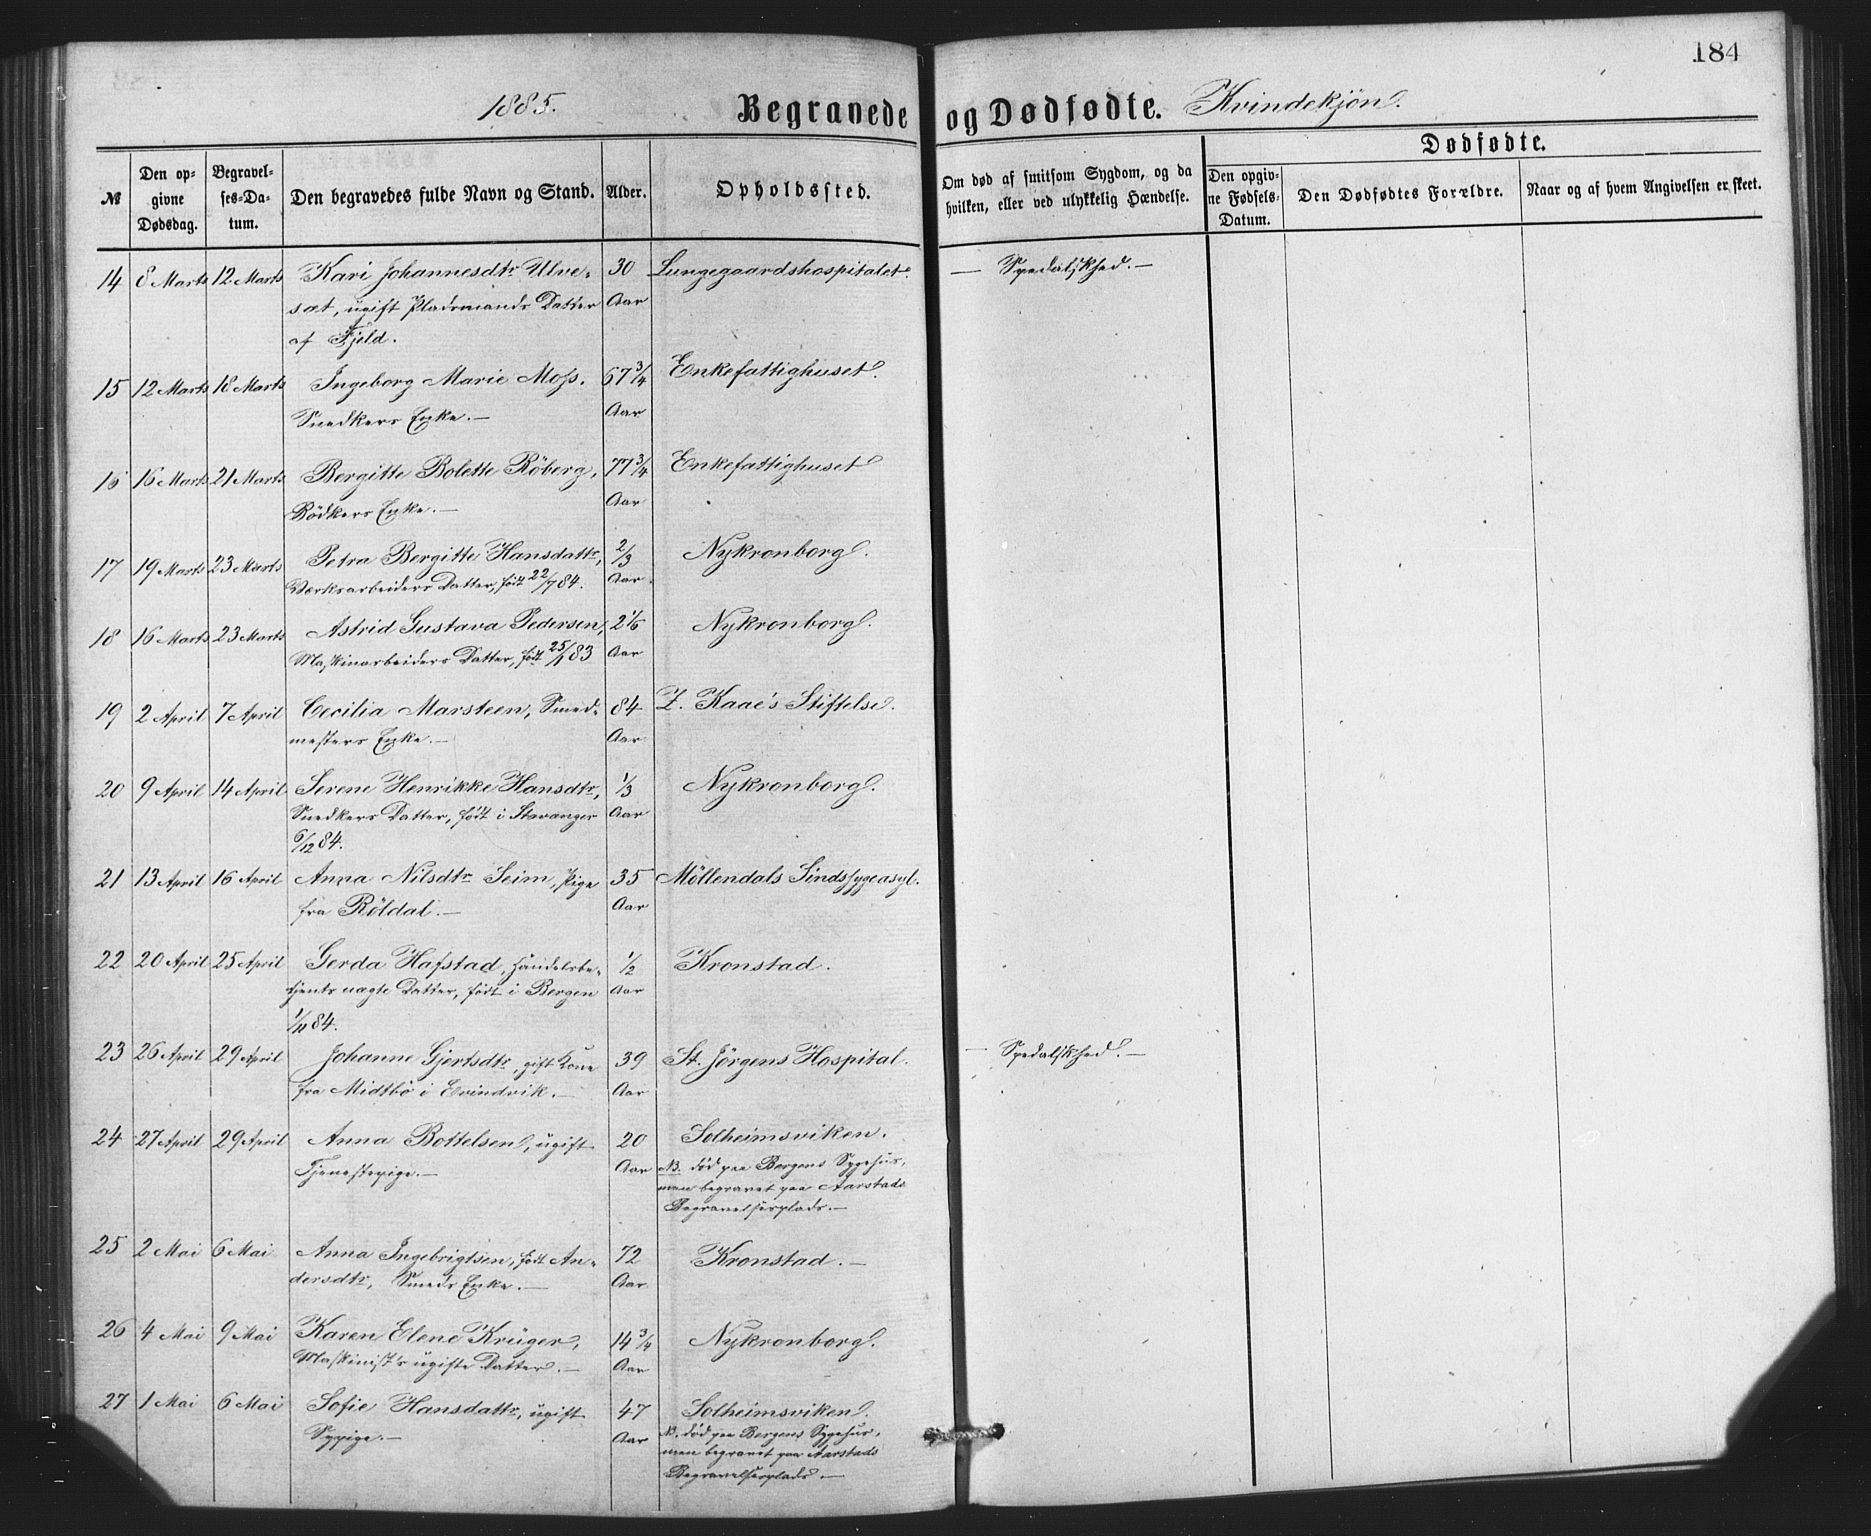 184
1885.
Begravede og Dødfødte. Kvindekjøn.
Dødfødte.
№
Den opgivne Dødsdag.
Begravelses-Datum.
Den begravedes fulde Navn og Stand.
Alder.
Opholdssted.
Om død af smitsom Sygdom, og da hvilken, eller ved ulykkelig Hændelse.
Den opgivne Fødsels-Datum.
Den Dødfødtes Forældre.
Naar og af hvem Angivelsen er skeet.
14 8 Marts 12 Marts Kari Johannesdtr Ulve- 30 Lungegaardshospitalet. — Spedalskhed. —
sæt, ugift Pladsmands Datter Aar
af Fjeld.
15 12 Marts 18 Marts Ingeborg Marie Moss. 67 3/4 Enkefattighuset.
Snedkers Enke. — Aar
16 16 Marts 21 Marts Bergitte Bolette Röberg, 77 3/4 Enkefattighuset
Bödkers Enke. — Aar
17 19 Marts 23 Marts Petra Bergitte Hansdattr, 2/3 Nykronborg.
Værksarbeiders Datter, født 22/7 84. Aar.
18 16 Marts 23 Marts Astrid Gustava Pedersen, 2 1/6 Nykronborg.
Maskinarbeiders Datter, født 25/1 83 Aar
19 2 April 7 April Cecilia Marsteen, Smed- 84 Z. Kaae's Stiftelse.
mesters Enke. — Aar
20 9 April 14 April Serene Henrikke Hansdtr, 1/3 Nykronborg.
Snedkers Datter, født i Stavanger Aar
6/12 84.
21 13 April 16 April Anna Nilsdtr Seim, Pige 35 Möllendals Sindssygeasyl.
fra Röldal. — Aar
22 20 April 25 April Gerda Hafstad, Handelsbe- 1/2 Kronstad.
tjents uægte Datter, født i Bergen Aar
1/11 84.
23 26 April 29 April Johanne Gjertsdtr, gift Kone 39 St. Jörgens Hospital. — Spedalskhed. —
fra Midtbö i Evindvik. — Aar
24 27 April 29 April Anna Bottelsen, ugift 20 Solheimsviken.
Tjenestepige. — Aar NB. død paa Bergens Sygehus,
men begravet paa Aarstads
Begravelsesplads. —
25 2 Mai 6 Mai Anna Ingebrigtsen, født An- 72 Kronstad. —
dersdtr, Smeds Enke. — Aar
26 4 Mai 9 Mai Karen Elene Krüger, 14 3/4 Nykronborg.
Maskinist's ugifte Datter. — Aar
27 1 Mai 6 Mai Sofie Hansdattr, ugift 47 Solheimsviken.
Sypige. — Aar NB. død paa Bergens Sygehus,
men begravet paa Aarstads
Begravelsesplads. —